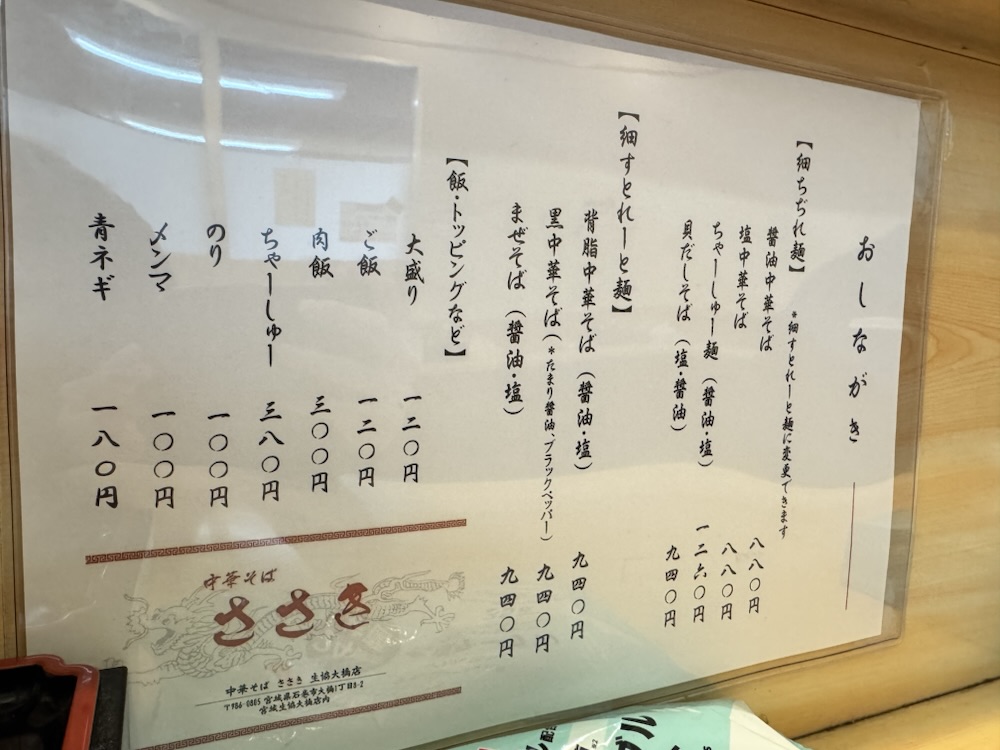 おしながき
【細ちぢれ麺】 *細すとれーと麺に変更できます
醤油中華そば 八八〇円
塩中華そば 八八〇円
ちゃーしゅー麺(醤油・塩) 一二六〇円
貝だしそば(塩・醤油) 九四〇円
【細すとれーと麺】
背脂中華そば(醤油・塩) 九四〇円
黒中華そば(*たまり醤油、ブラックペッパー) 九四〇円
まぜそば(醤油・塩) 九四〇円
【飯・トッピングなど】
大盛り 一二〇円
ご飯 一二〇円
肉飯 三〇〇円
ちゃーしゅー 三八〇円
のり 一〇〇円
メンマ 一〇〇円
青ネギ 一八〇円
中華そば
ささき
中華そば ささき 生協大橋店
〒986-0805 宮城県石巻市大橋1丁目8-2
宮城生協大橋店内